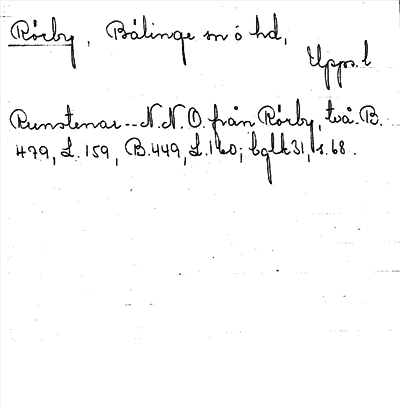 Rörby, Bälinge sn ö hd,
Upps. l
Runstenar -- N.N.O. från Rörby, två. B.
479, L. 159, B. 449, L. 160; bglk 31, s. 68.